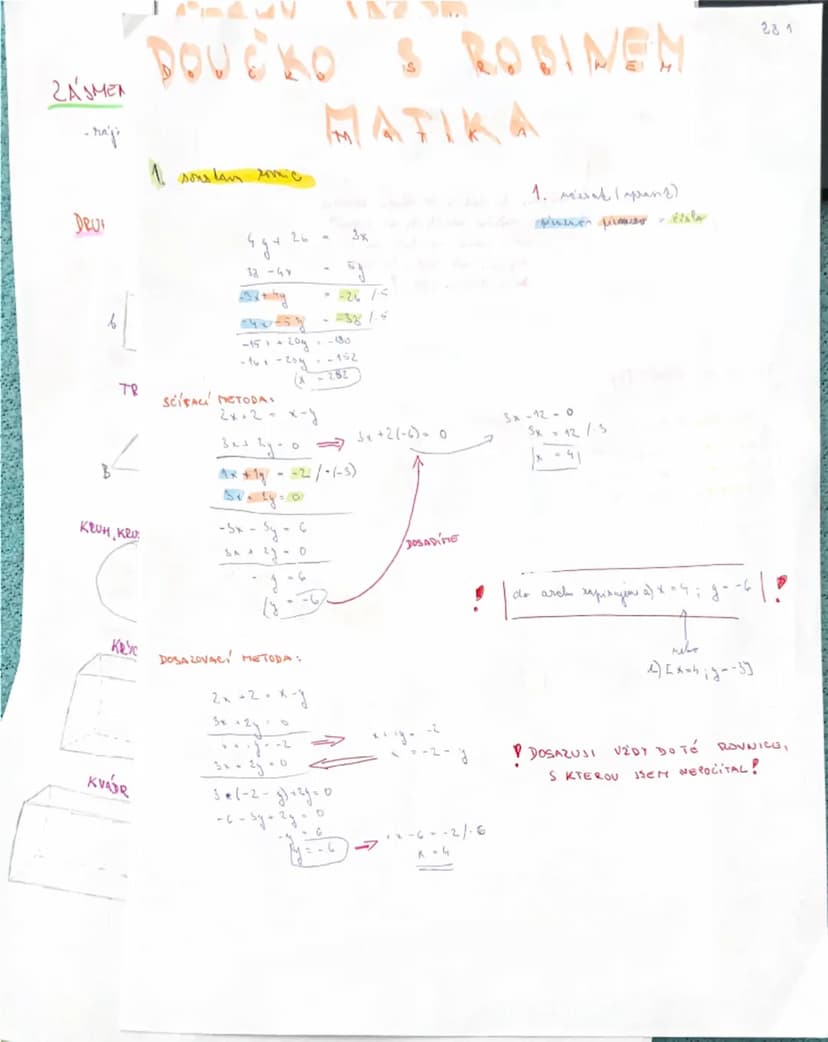 28 1
DOUČKO S ROBINEM
MATIKA
ZÁJMEN
1. soustav rovnic
1. násob (uprav)
písmen písmeno = číslo
DRUI
4y + 26 = 3x
38 - 4x = 5y
-3x + 4y = -26 /·5
-4x - 5y = -38 /·5
-15x + 20y = -130
-16x - 20y = -152
x = 282
b
TR
SČÍTACÍ METODA:
2x + 2 = x - y
3x + 2y = 0
3x + 2(-6) = 0
3x - 12 = 0
3x = 12 /:3
x = 4
1x + 1y = -2 /·(-3)
3x + 2y = 0
B
-3x - 3y = 6
3x + 2y = 0
- y = 6
y = -6
DOSADÍME
KRUH, KRU
! do archu zapisujeme a) x = 4 ; y = -6 !
nebo
b) [x=4 ; y=-3]
KRYC
DOSAZOVACÍ METODA:
2x + 2 = x - y
3x + 2y = 0
x + y = -2
3x + 2y = 0
x + y = -2
x = -2 - y
! DOSAZUJI VŽDY DO TÉ ROVNICE,
S KTEROU JSEM NEPOČÍTAL!
KVÁDR
3·(-2 - y) + 2y = 0
-6 - 3y + 2y = 0
-y = 6
y = -6
x - 6 = -2 /+6
x = 4